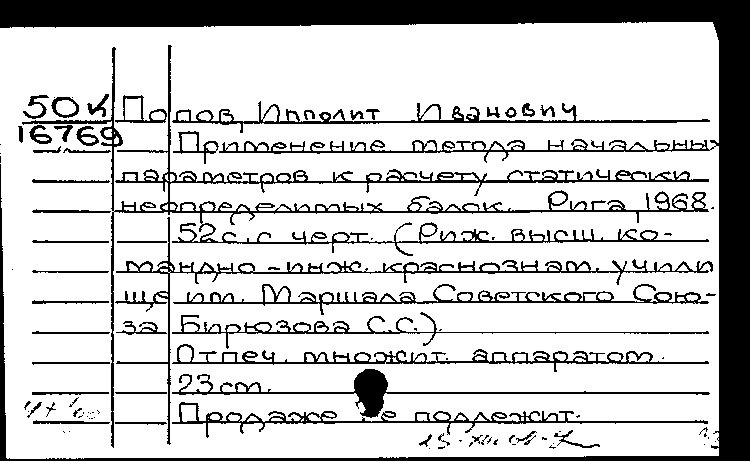 50 К Попов, Ипполит Иванович
16769
Применение метода начальных
параметров к расчету статически
неопределимых балок. Рига, 1968.
52 с. с черт. (Риж. высш. ко-
мандно-инж. краснознам. учили
ще им. Маршала Советского Сою-
за Бирюзова С.С.)
Отпеч. множит. аппаратом.
23 см.
Продаже не подлежит.